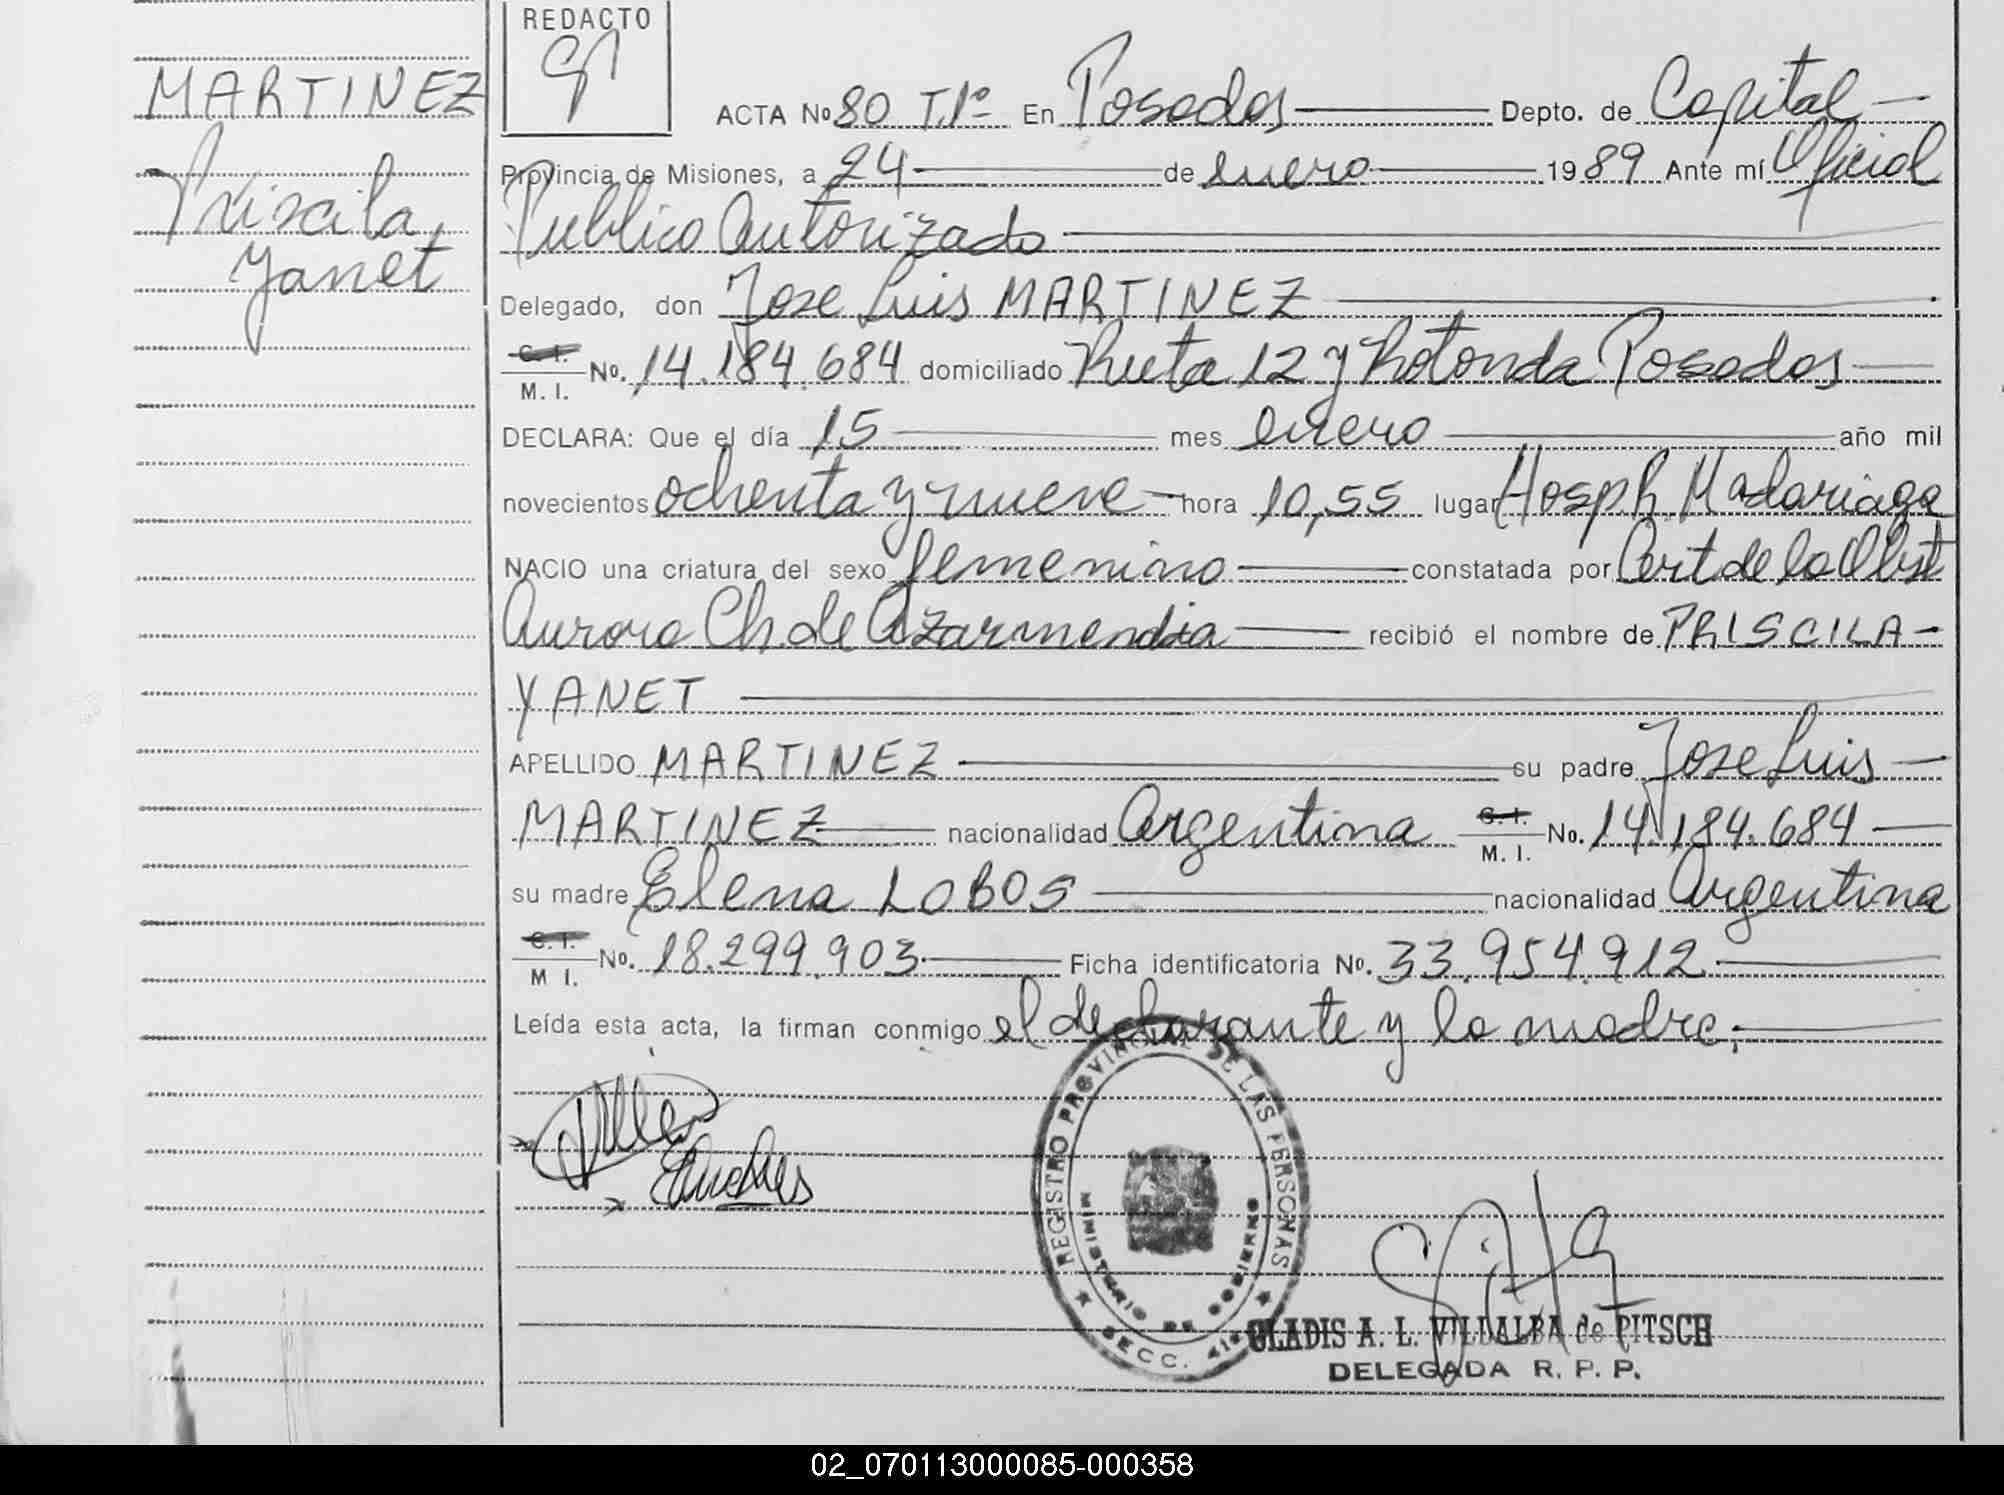 REDACTO
MARTINEZ
Priscila
Yanet
ACTA Nº 80 T.1º En Posadas Depto. de Capital
Provincia de Misiones, a 24 de enero 1989 Ante mí Oficial
Publico Autorizado
Delegado, don Jose Luis MARTINEZ
C. I.
M. I. No. 14.184.684 domiciliado Ruta 12 y Rotonda Posadas
DECLARA: Que el día 15 mes enero año mil
novecientos ochenta y nueve hora 10,55 lugar Hosp. R. Madariaga
NACIO una criatura del sexo femenino constatada por Cert de la Obst
Aurora Ch. de Azarmendia recibió el nombre de PRISCILA
YANET
APELLIDO MARTINEZ su padre Jose Luis
MARTINEZ nacionalidad Argentina C. I.
M. I. No. 14.184.684
su madre Elena LOBOS nacionalidad Argentina
C. I.
M I. No. 18.299.903 Ficha identificatoria No. 33.954.912
Leída esta acta, la firman conmigo el declarante y la madre.
REGISTRO PROVINCIAL DE LAS PERSONAS
MINISTERIO DE GOBIERNO
SECC.
GLADIS A. L. VILLALBA de PITSCH
DELEGADA R. P. P.
02_070113000085-000358